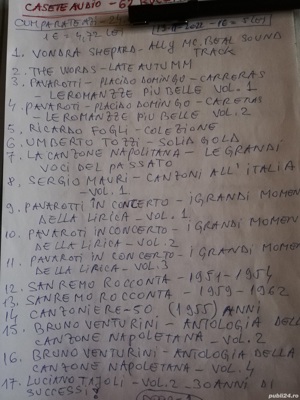 CASETE AUDIO - 67 BUC
CUMPARATE
1€ = 4,72 lei
1. VONDRA SHEPARD - ALLY MC. BEAL SOUND
TRACK
2. THE WORDS - LATE AUTUMM
3. PAVAROTTI - PLACIDO DOMINGO - CARRERAS
- LE ROMANZZE PIU BELLE VOL. 1
4. PAVAROTI - PLACIDO DOMINGO - CARERAS
- LE ROMANZE PIU BELLE VOL. 2
5. RICARDO FOGLI - COLEZIONE
6. UMBERTO TOZZI - SOLID GOLD
7. LA CANZONE NAPOLITANA - LE GRANDI
VOCI DEL PASSATO
8. SERGIO MAURI - CANZONI ALL' ITALIA
- VOL. 1
9. PAVAROTTI IN CONCERTO - I GRANDI MOMEN
DELLA LIRICA - VOL. 1
10. PAVAROTI IN CONCERTO - I GRANDI MOMEN
DELLA LIRICA - VOL. 2
11. PAVAROTI IN CONCERTO - I GRANDI MOMEN
DE LLA LIRICA - VOL. 3
12. SANREMO ROCCONTA - 1951 - 1954
13. SANREMO ROCCONTA - 1959 - 1962
14. CANZONIERE - 50. (1955) ANNI
15. BRUNO VENTURINI - ANTOLOGIA DELLA
CANZONE NAPOLETANA - VOL. 2
16. BRUNO VENTURINI - ANTOLOGIA DELLA
CANZONE NAPOLETANA - VOL. 4
17. LUCIANO TAJOLI - VOL. 2 - 30 ANNI DI
SUCCESSI
publi24.ro